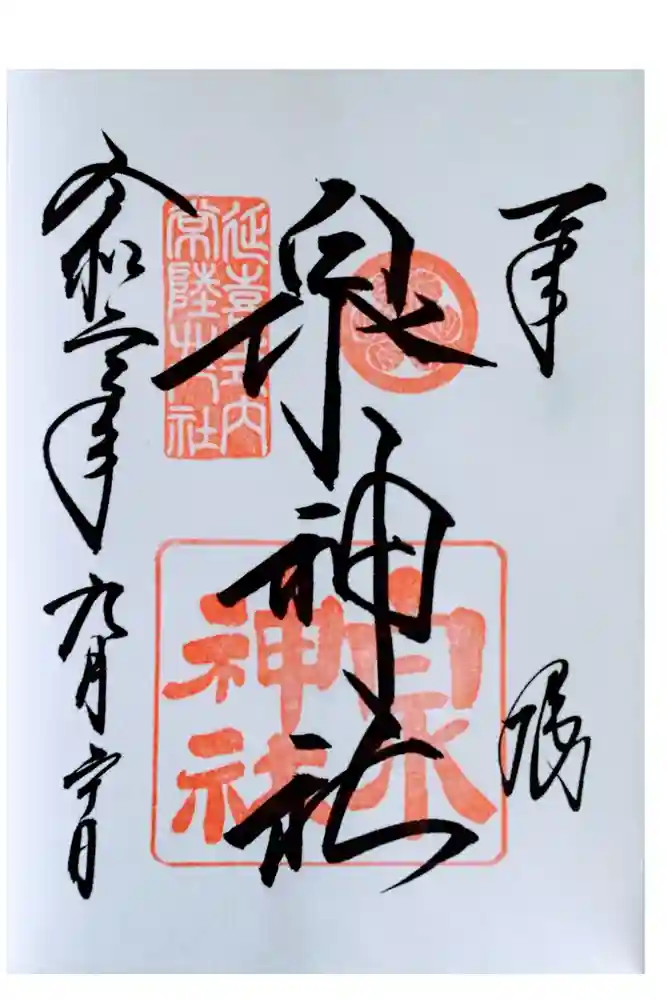 奉拝
泉神社
延喜式内
常陸廿八社
泉
神社
令和 年九月 日